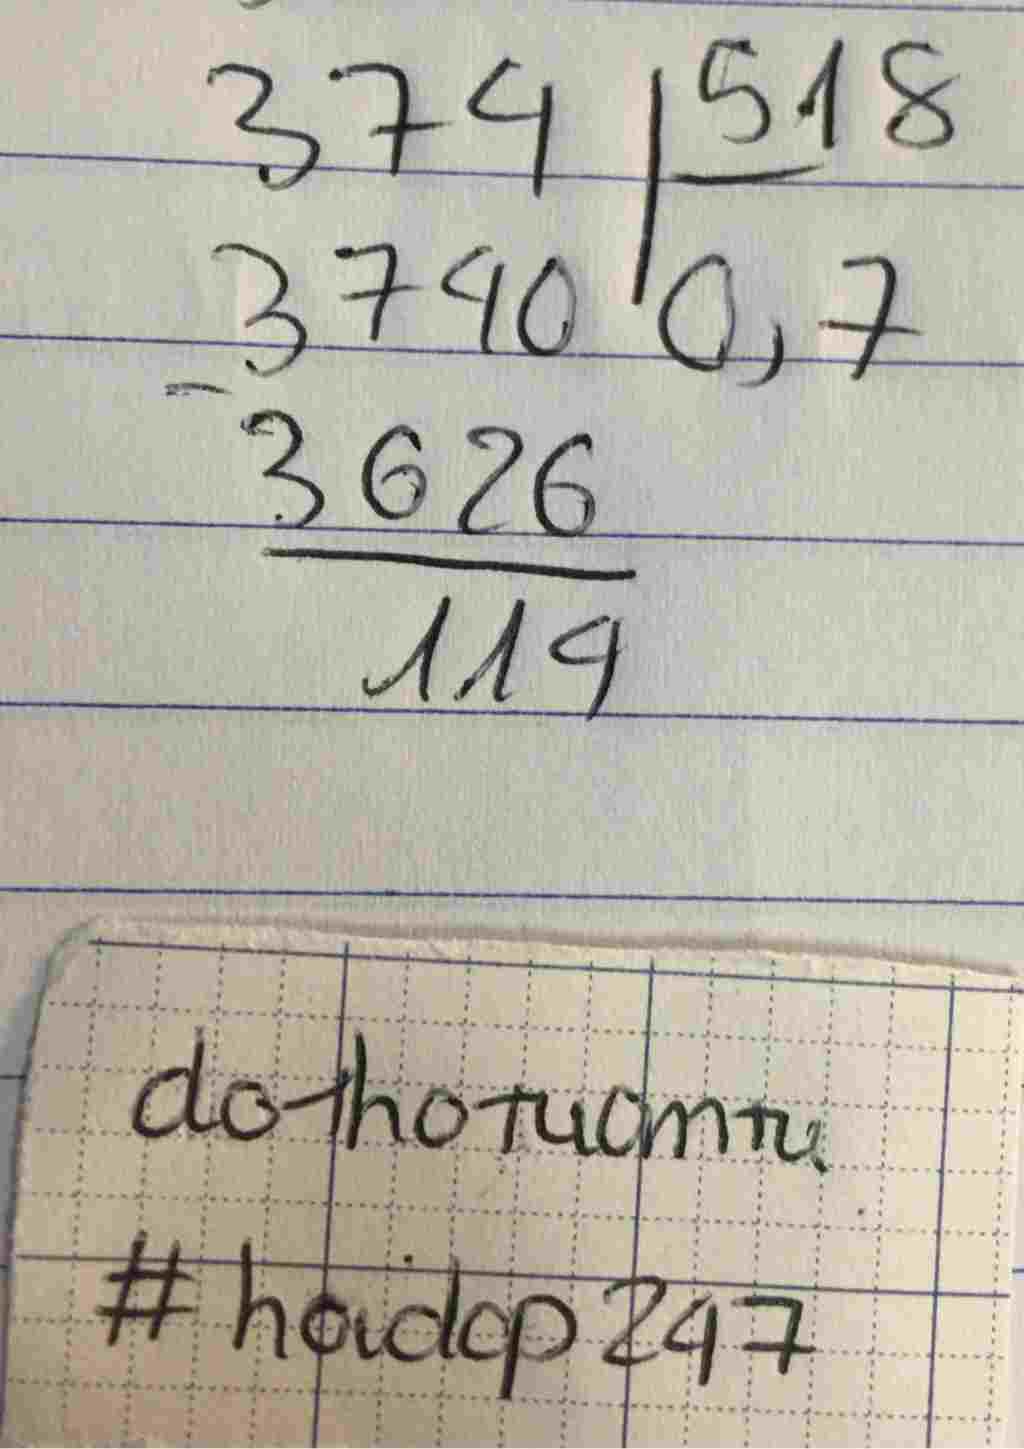 374 518
3740 0,7
-
3626
114
dothotuantu
#hoidap247